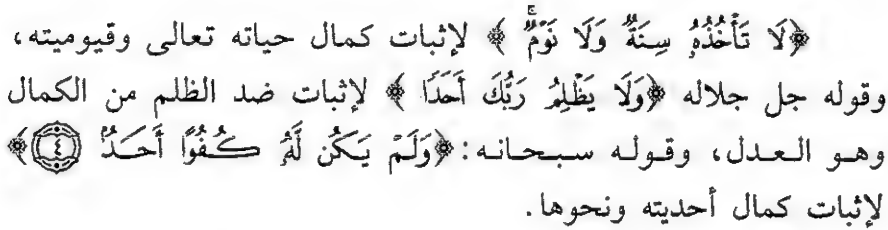 ﴿لَا تَأْخُذُهُ سِنَةٌ وَلَا نَوْمٌ﴾ لإثبات كمال حياته تعالى وقيوميته،
وقوله جل جلاله ﴿وَلَا يَظْلِمُ رَبُّكَ أَحَدًا﴾ لإثبات ضد الظلم من الكمال
وهو العدل، وقوله سبحانه: ﴿وَلَمْ يَكُن لَّهُ كُفُوًا أَحَدٌ ٤﴾
لإثبات كمال أحديته ونحوها.